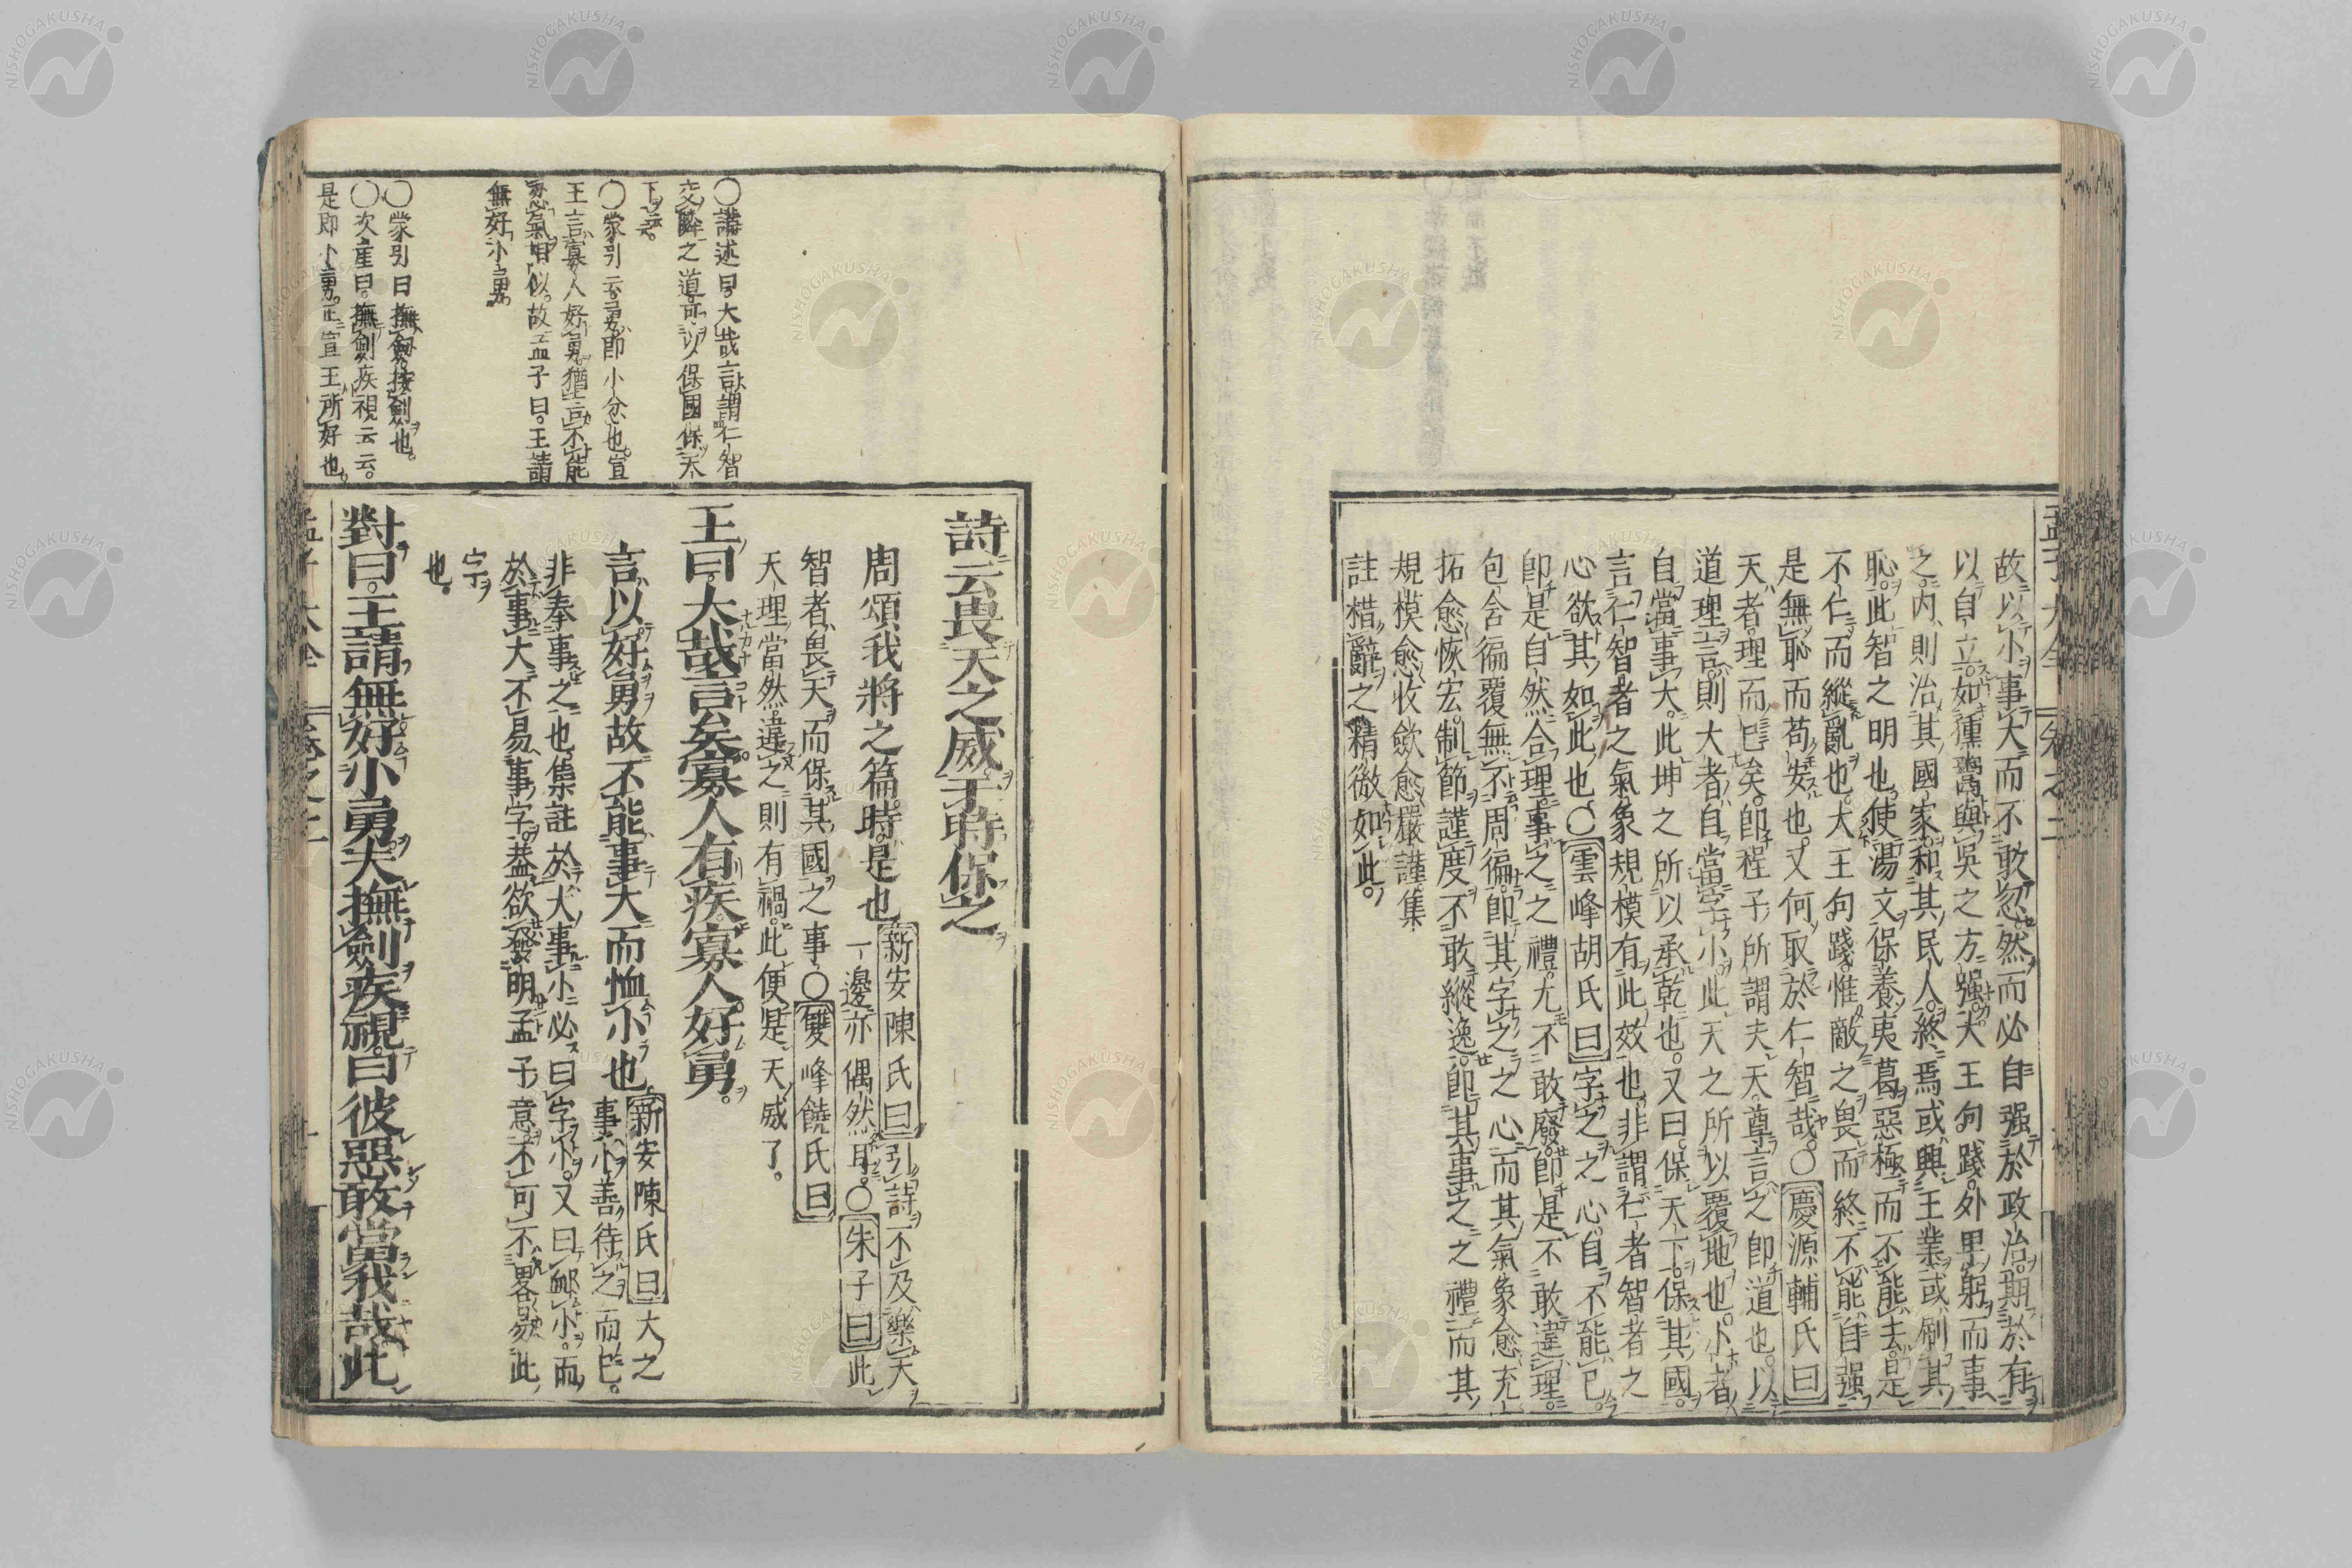 故以小事大而不敢忽然而必自强於政治期於有
以自立如獯鬻與吳之方强大王句踐外卑躬而事
之内則治其國家和其民人終焉或興王業或刷其
恥此智之明也使湯文保養夷葛惡極而不能去是
不仁而縱亂也大王句踐惟敵之畏而終不能自强
是無恥而苟安也又何取於仁智哉○慶源輔氏曰
天者理而已矣即程子所謂夫天專言之即道也以
道理言則大者自當字小此天之所以覆地也小者
自當事大此坤之所以承乾也又曰保天下保其國
言仁智者之氣象規模有此效也非謂仁者智者之
心欲其如此也○雲峰胡氏曰字之之心自不能已
即是自然合理事之之禮尤不敢廢即是不敢違理
包含徧覆無不周徧即其字之之心而其氣象愈充
拓愈恢宏制節謹度不敢縱逸即其事之之禮而其
規模愈收歛愈嚴謹集
註措辭之精微如此
孟子大全 卷之二
○講述曰大哉言謂仁智
交隣之道可以保國保天
下云云
○蒙引云勇即小忿也宣
王言寡人好勇猶言不能
忍氣相似故孟子曰王請
無好小勇
○蒙引曰撫劔按劔也
○次崖曰撫劔疾視云云
是即小勇正宣王所好也
詩云畏天之威于時保之
周頌我將之篇時是也新安陳氏曰引詩不及樂天
一邊亦偶然耳○朱子曰此
智者畏天而保其國之事○雙峰饒氏曰
天理當然違之則有禍此便是天威了
王曰大哉言矣寡人有疾寡人好勇
言以好勇故不能事大而恤小也新安陳氏曰大之
事小善待之而已
非奉事之也集註於大事小必曰字小又曰䘏小而
於事大不易事字葢欲發明孟子意不可不畧易此
字
也
對曰王請無好小勇夫撫劔疾視曰彼惡敢當我哉此